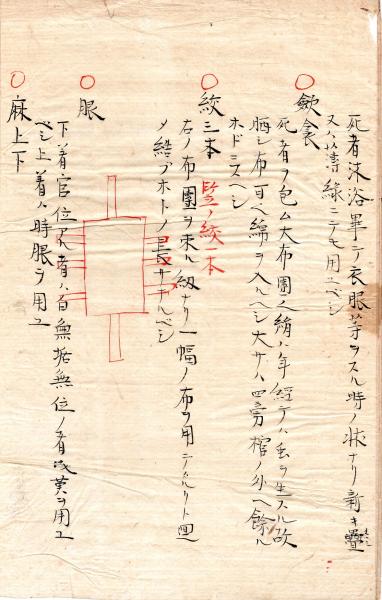 死者沐浴畢テ衣服等ヲスル時ノ状ナリ新キ疊
又ハ薄縁ニテモ用ユベシ
○斂衾
死者ヲ包ム大布團ノ絹ハ年經テハ虫ヲ生スル故
布可ヘ綿ヲ入ルヘシ大サハ四方棺ノ外ヘ餘ル
ホドニスヘシ
○絞三本 竪ノ絞一本
右ノ布團ヲ束ル紐ナリ一幅ノ布ヲ用ニクルリト廻
メ結ブホトノ長サナルベシ
○服
下着官位アル者ハ白無垢無位ノ者浅黄ヲ用ユ
ベシ上着ハ時服ヲ用ユ
○麻上下